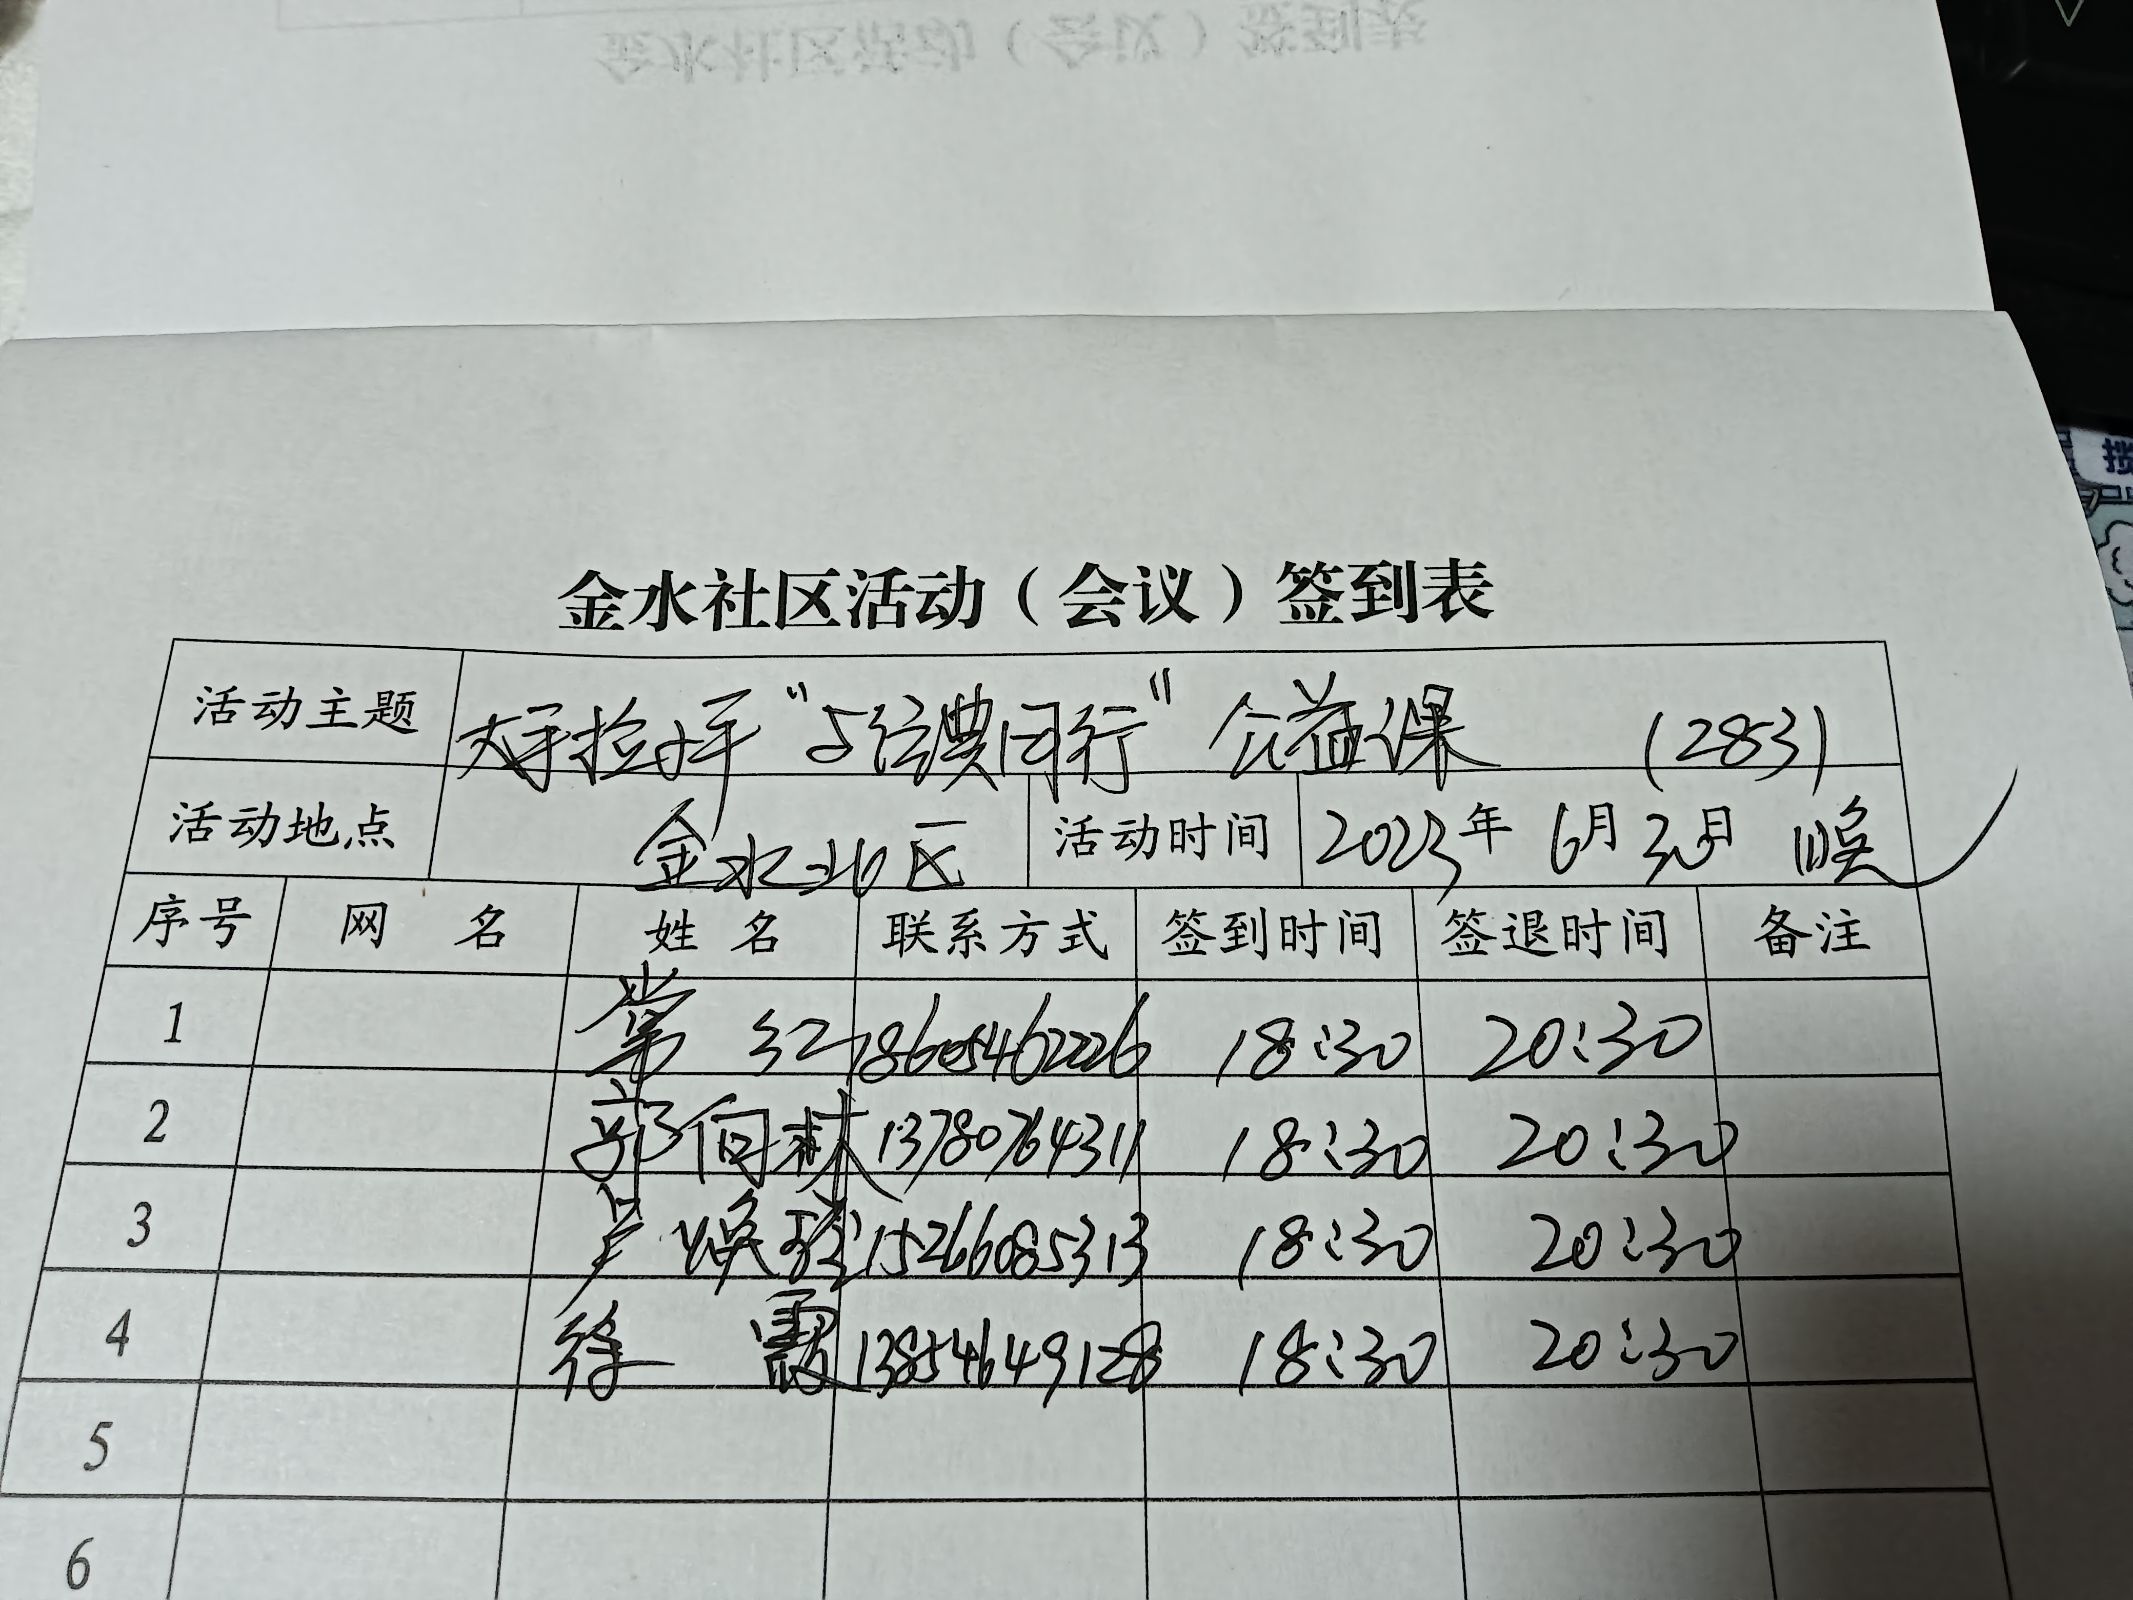 金水社区活动（会议）签到表
活动主题 大手拉小手“与经典同行”公益课 (283)
活动地点 金水北区 活动时间 2023年6月30日 晚
序号 网 名 姓 名 联系方式 签到时间 签退时间 备注
1 常红 18605462226 18:30 20:30
2 郭向林 13780764311 18:30 20:30
3 卢焕 15266085313 18:30 20:30
4 徐霞 13854649128 18:30 20:30
5
6